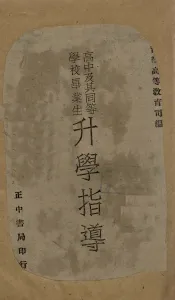 教育司編
高中及其同等
學校畢業生
升學指導
正中書局印行